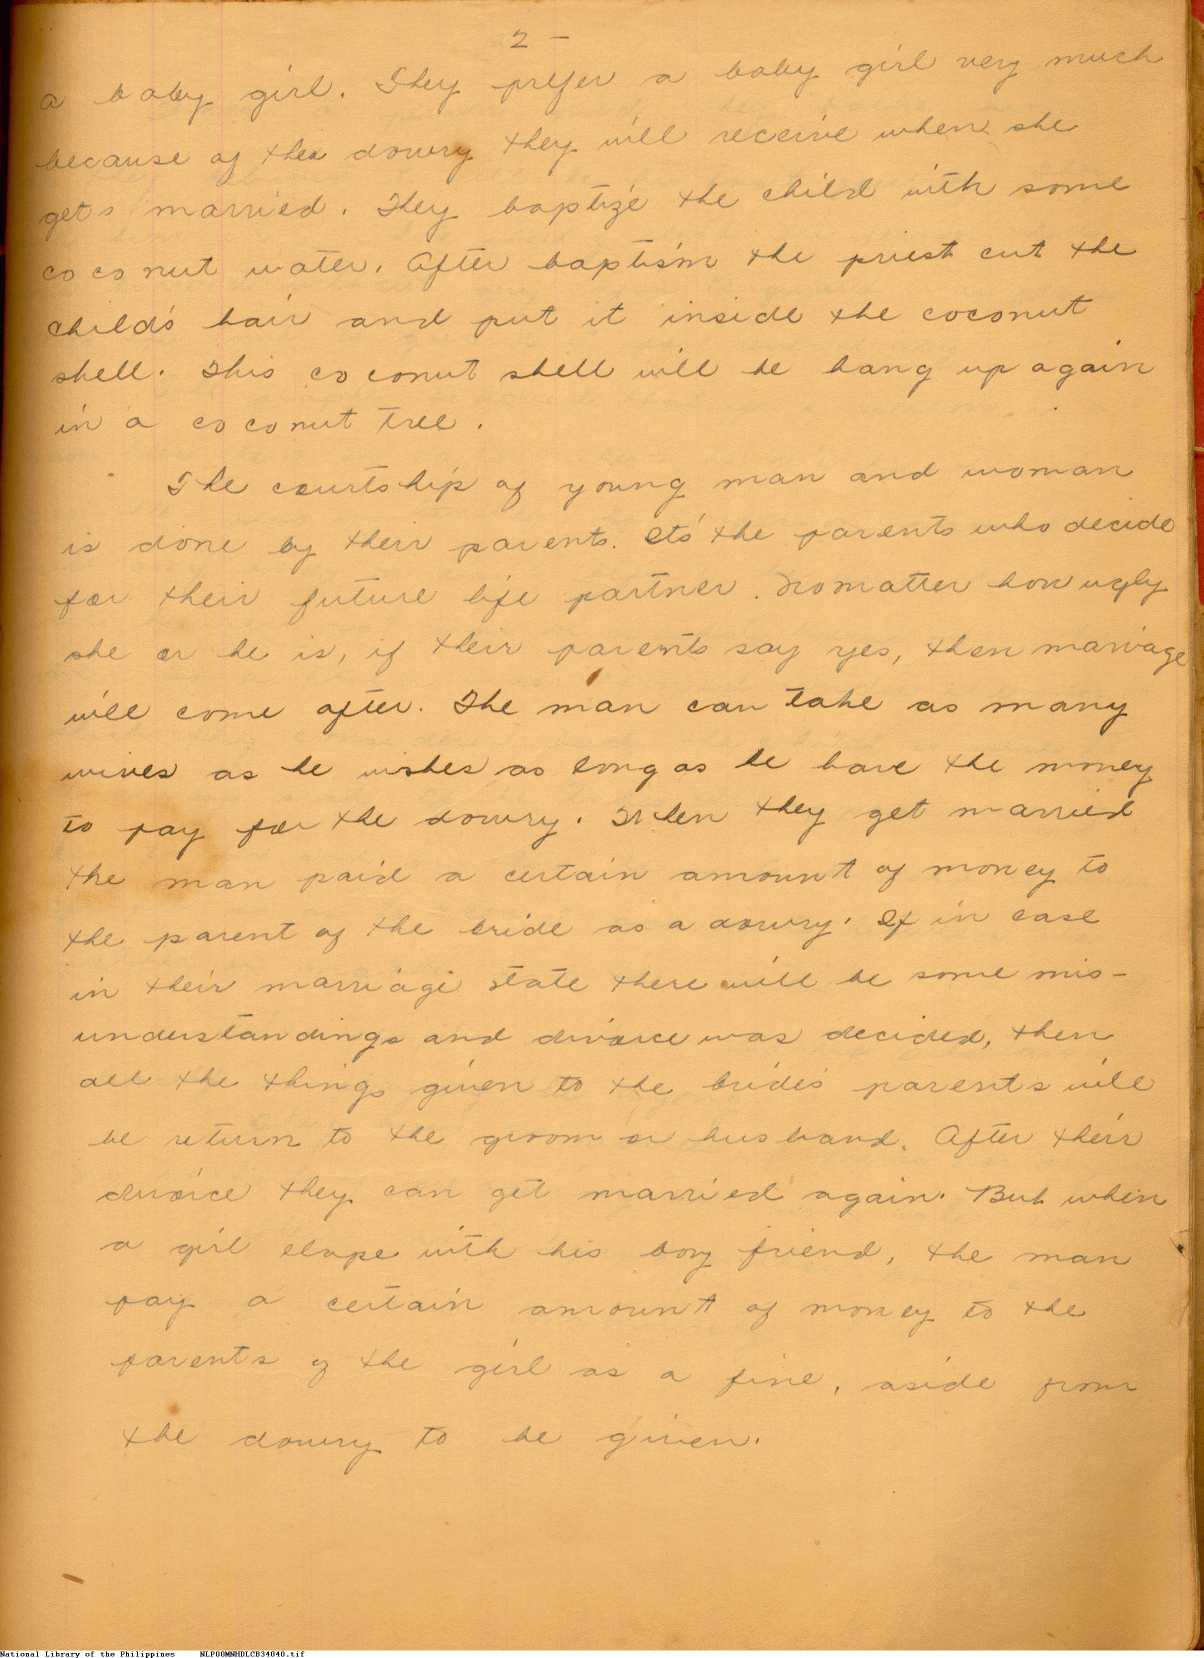 2 -
a baby girl. They prefer a baby girl very much
because of the dowry they will receive when she
gets married. They baptize the child with some
coconut water. After baptism the priest cut the
child's hair and put it inside the coconut
shell. This coconut shell will be hang up again
in a coconut tree.
The courtship of young man and woman
is done by their parents. Its' the parents who decide
for their future life partner. No matter how ugly
she or he is, if their parents say yes, then marriage
will come after. The man can take as many
wives as he wishes as long as he have the money
to pay for the dowry. When they get married
the man paid a certain amount of money to
the parent of the bride as a dowry. If in case
in their marriage state there will be some mis-
understandings and divorce was decided, then
all the things given to the bride's parents will
be return to the groom or husband. After their
divorce they can get married again. But when
a girl elope with his boy friend, the man
pay a certain amount of money to the
parents of the girl as a fine, aside from
the dowry to be given.
National Library of the Philippines NLP00MNHDLCB34040.tif